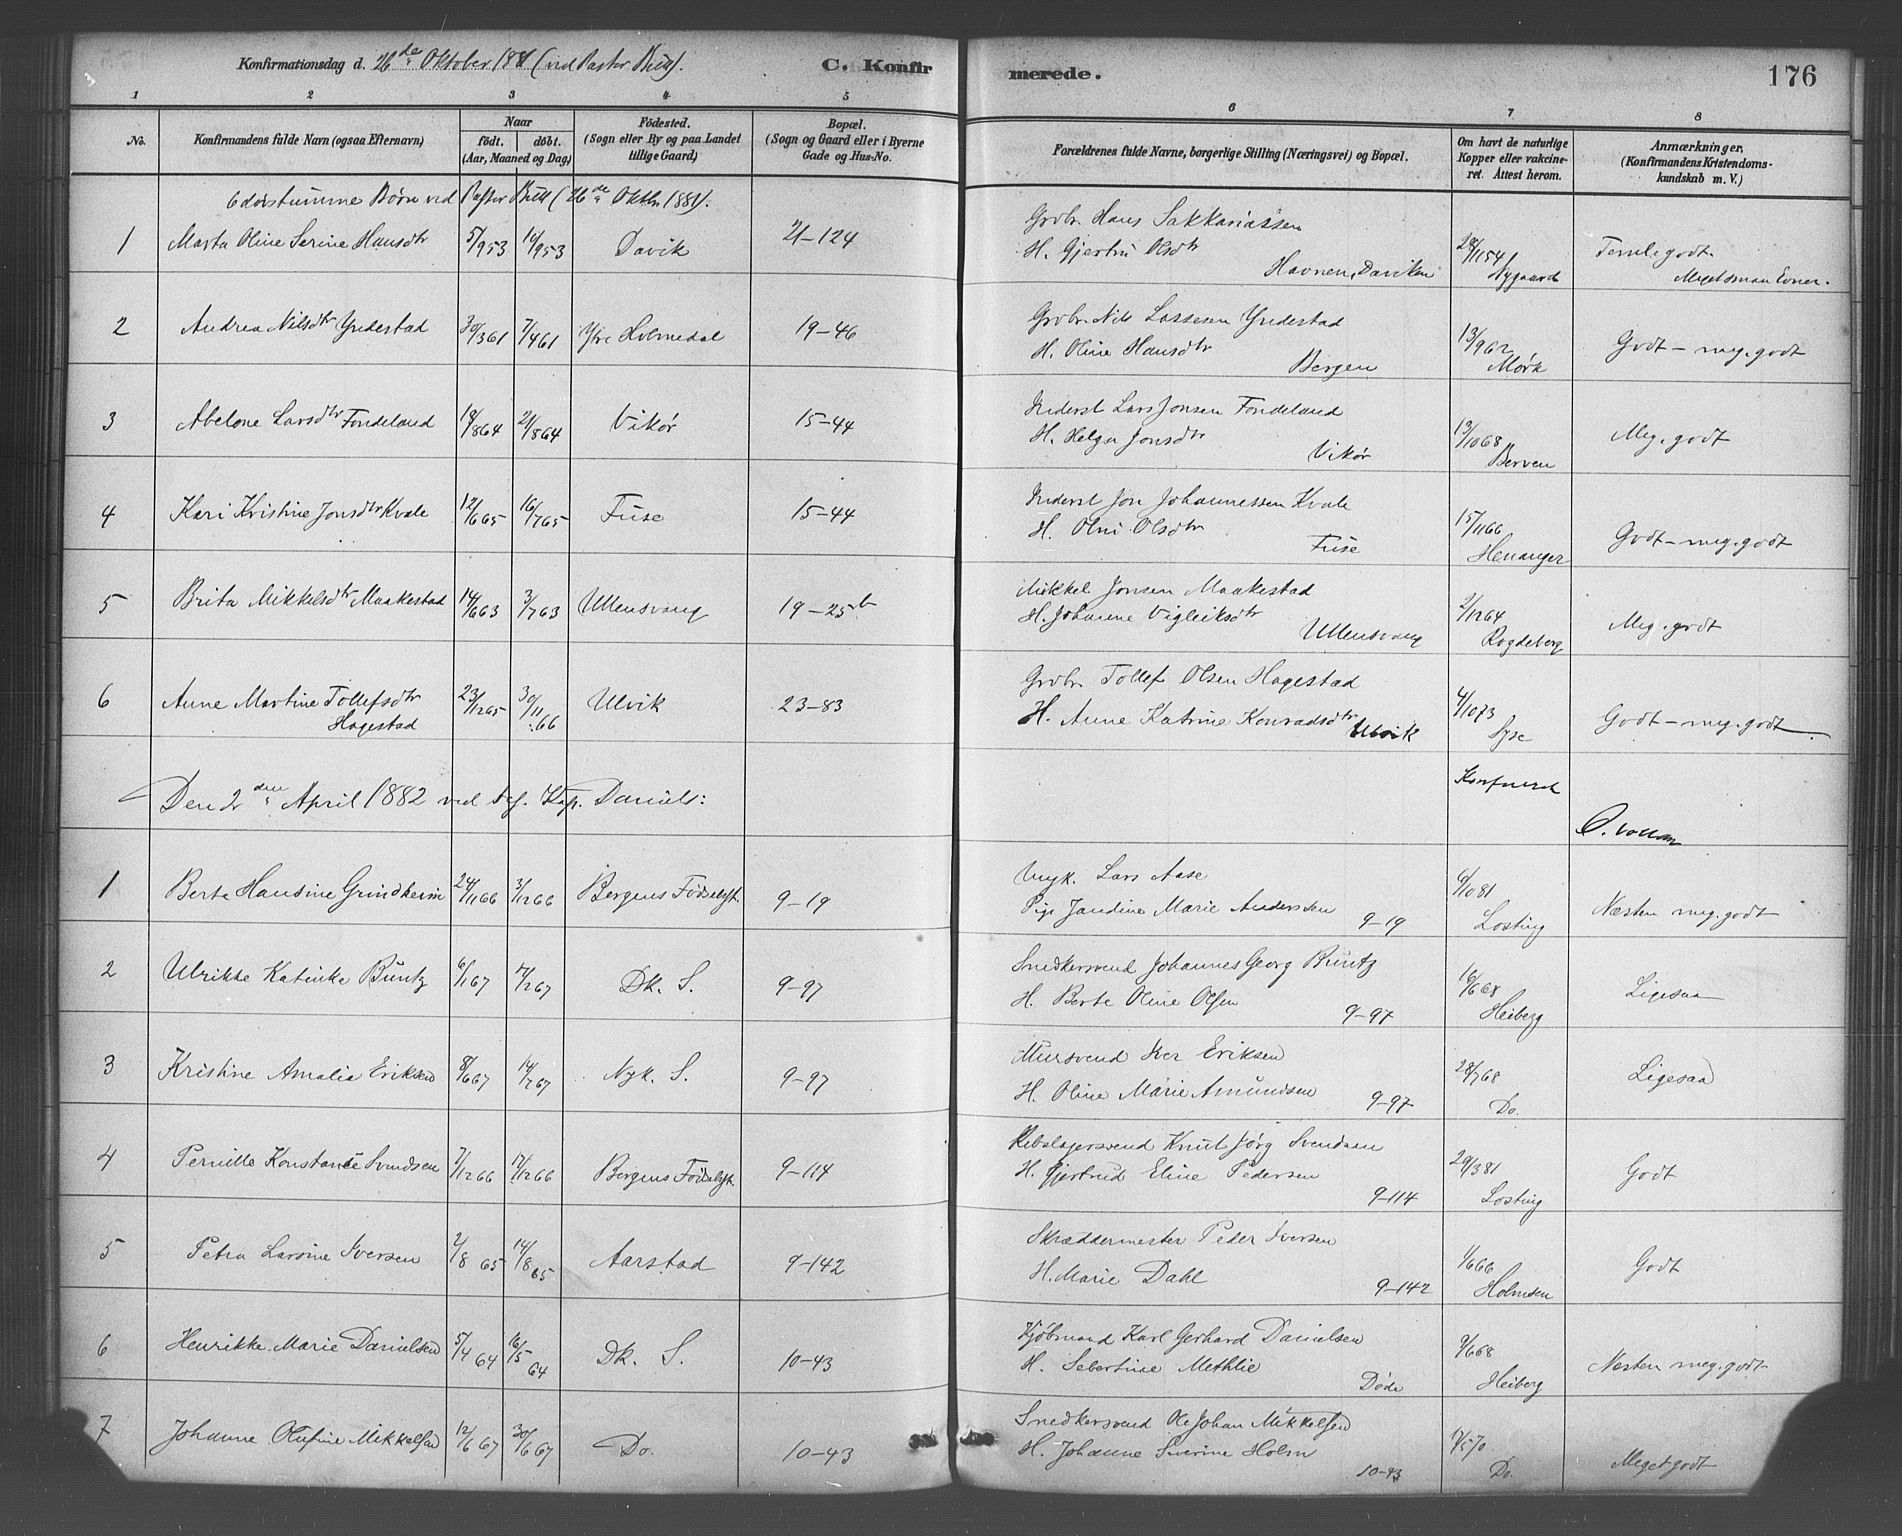 Konfirmationsdag d. 26de Oktober 1881 (ved Pastor Bull).
C. Konfir
merede.
176
1 2 3 4 5 6 7 8
No.
Konfirmandens fulde Navn (ogsaa Efternavn)
Naar
födt. döbt.
(Aar, Maaned og Dag)
Födested.
(Sogn eller By og paa Landet
tillige Gaard)
Bopæl.
(Sogn og Gaard eller i Byerne
Gade og Hus-No.
Forældrenes fulde Navne, borgerlige Stilling (Næringsvei) og Bopæl.
Om havt de naturlige
Kopper eller vakcine-
ret. Attest herom.
Anmærkninger,
(Konfirmandens Kristendoms-
kundskab m. V.)
6 døvstumme Børn ved Pastor Bull (26de Oktbr 1881).
1 Marta Oline Serine Hansdtr 5/953 16/953 Davik 21-124
Grdbr. Hans Sakkariassen
H. Gjertru Olsdtr
Havnen, Daviken
28/1154
Nygaard
Teml. godt.
Meget smaa Evner.
2 Andrea Nilsdtr Yndestad 30/361 7/461 Ytre Holmedal 19-46
Grdbr. Nils Lassesen Yndestad
H. Oline Hansdtr
Bergen
13/962
Mørk
Godt - meg. godt
3 Abelone Larsdtr Fondeland 19/864 21/864 Vikør 15-44
Inderst Lars Jonsen Fondeland
H. Helga Jonsdtr
Vikør
13/1068
Berven
Meg. godt
4 Kari Kristine Jonsdtr Kvale 12/665 16/765 Fuse 15-44
Inderst Jon Johannessen Kvale
H. Olni Olsdtr
Fuse
15/1166
Henanger
Godt - meg. godt
5 Brita Mikkelsdtr Maakestad 14/663 3/763 Ullensvang 19-25b
Mikkel Jonsen Maakestad
H. Johanne Vigleiksdtr
Ullensvang
2/1264
Rogdeberg
Meg. godt
6 Anne Martine Tollefsdtr
Hagestad
23/1265 30/11 66 Ulvik 23-83
Grdbr. Tollef Olsen Hagestad
H. Anne Katrine Konradsdtr Ulvik
4/1073
Syse
Godt - meg. godt
Den 2den April 1882 ved Kap. Daniels:
1 Berte Hansine Grindheim 24/1166 3/1266 Bergens Fødselsst. 9-19
Lars Aase
Pige Jandine Marie Anderssen
9-19
6/1081
Losting
Næsten meg. godt
2 Ulrikke Katinka Buntz 6/167 17/267 Dk. S. 9-97
Snedkersvend Johannes Georg Buntz
H. Berte Oline Olsen
9-97
16/668
Heiberg
Ligesaa
3 Kristine Amalia Eriksen 8/667 14/767 Nyk. S. 9-97
Mursvend Iver Eriksen
H. Oline Marie Amundsen
9-97
28/768
Do.
Ligesaa
4 Pernille Konstance Svendsen 7/1266 17/1266 Bergens Fødselsst. 9-114
Rebslagersvend Knut Jørg Svendsen
H. Gjertrud Eline Pedersen
9-114
29/381
Losting
Godt
5 Petra Larsine Iversen 2/8 65 14/865 Aarstad 9-142
Skræddermester Peder Iversen
H. Marie Dahl
9-142
1/666
Holmsen
Godt
6 Henrikke Marie Danielsen 5/4 64 16/5 64 Dk. S. 10-43
Kjøbmand Karl Gerhard Danielsen
H. Sebertine Methlie
Døde
9/668
Heiberg
Næsten meg. godt
7 Johanne Olufine Mikkelsen 12/667 30/667 Do. 10-43
Snedkersvend Ole Johan Mikkelsen
H. Johanne Severine Holm
10-43
11/570
Do.
Meget godt